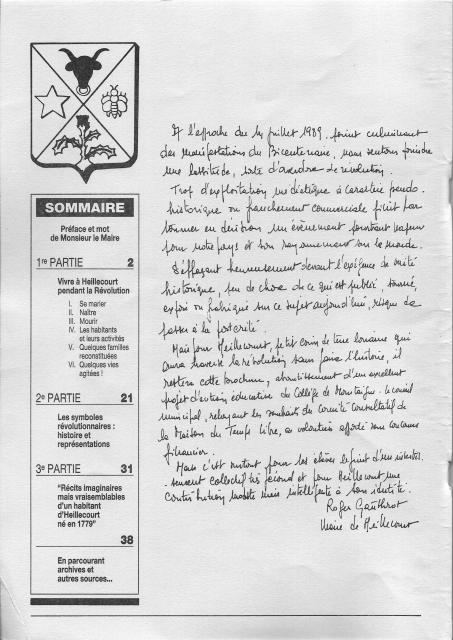 SOMMAIRE
Préface et mot
de Monsieur le Maire
1re PARTIE 2
Vivre à Heillecourt
pendant la Révolution
I. Se marier
II. Naître
III. Mourir
IV. Les habitants
et leurs activités
V. Quelques familles
reconstituées
VI. Quelques vies
agitées !
2e PARTIE 21
Les symboles
révolutionnaires :
histoire et
représentations
3e PARTIE 31
"Récits imaginaires
mais vraisemblables
d'un habitant
d'Heillecourt
né en 1779"
38
En parcourant
archives et
autres sources...
A l'approche du 14 juillet 1989, point culminant
des manifestations du Bicentenaire, nous sentons poindre
une lassitude, sorte d'overdose de révolution.
Trop d'exploitation médiatique à caractère pseudo-
historique ou franchement commerciale finit par
tourner en dérision un évènement pourtant majeur
pour notre pays et son rayonnement sur le monde.
S'effaçant heureusement devant l'exigence de vérité
historique, peu de choses de ce qui est publié, tourné,
exposé ou fabriqué sur ce sujet aujourd'hui, risque de
passer à la postérité.
Mais pour Heillecourt, petit coin de terre lorraine qui
aura traversé la révolution sans faire l'histoire, il
restera cette brochure, aboutissement d'un excellent
projet d'action éducative du Collège de Montaigu. Le conseil
municipal, relayant les souhaits du Comité Consultatif de
la Maison du Temps Libre, a volontiers apporté son concours
financier.
Mais c'est surtout pour les élèves le fruit d'un investis-
sement collectif si fécond et pour Heillecourt une
contribution modeste mais intelligente à son identité.
Roger Gauthrot
Maire de Heillecourt